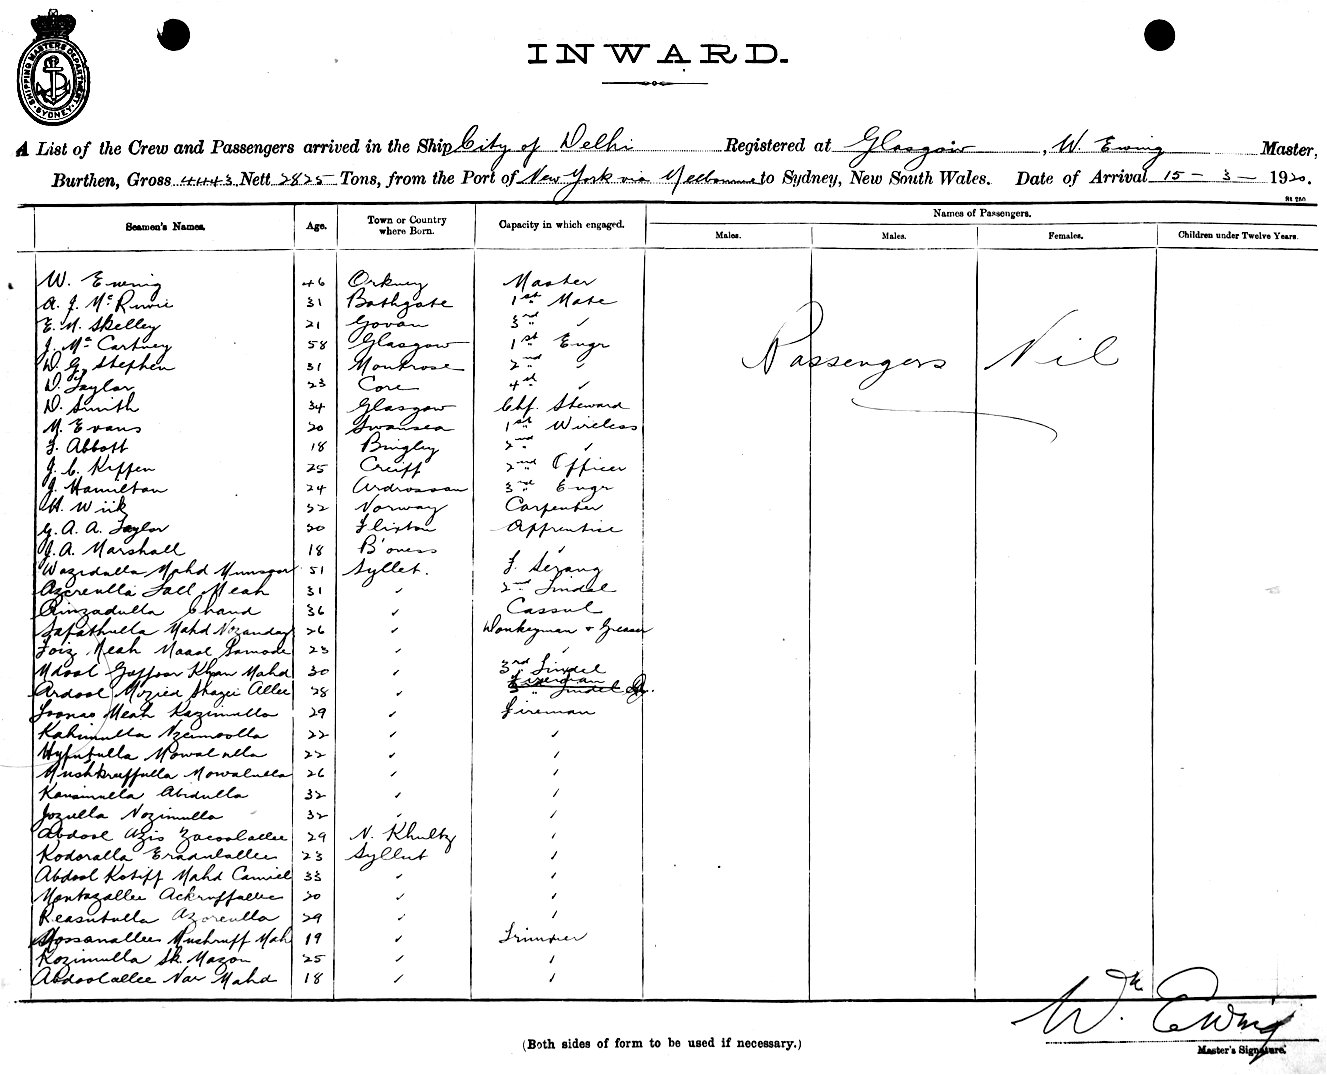 SHIPPING MASTERS DEPARTMENT
SYDNEY
INWARD.
A List of the Crew and Passengers arrived in the Ship City of Delhi Registered at Glasgow, W. Ewing Master,
Burthen, Gross 4443 Nett 2825 Tons, from the Port of New York via Melbourne to Sydney, New South Wales. Date of Arrival 15 - 3 - 1920.
Names of Passengers.
Seamen's Names. Age. Town or Country where Born. Capacity in which engaged. Males. Males. Females. Children under Twelve Years.
W. Ewing 46 Orkney Master
A. J. McRuvie 31 Bathgate 1st Mate
E. N. Skelley 21 Govan 3rd ✓
J. McCartney 58 Glasgow 1st Engr
D. G. Stephen 31 Montrose 2nd ✓
Passengers Nil
D. Taylor 23 Core 4th ✓
D. Smith 34 Glasgow Chf. Steward
M. Evans 20 Swansea 1st Wireless
F. Abbott 18 Bingley 2nd ✓
J. C. Kippen 25 Crieff 2nd Officer
J. Hamilton 24 Ardrossan 3rd Engr
H. Wiik 32 Norway Carpenter
G. A. A. Taylor 20 Flixton Apprentice
J. A. Marshall 18 B'oness ✓
Wazidulla Mahd Munsoor 51 Syllet. F. Serang
Azerulla Lall Meah 31 ✓ 2nd Tindel
Rinzadulla Chand 36 ✓ Cassul
Safathulla Mahd Nozanday 26 ✓ Donkeyman & Greaser
Foiz Meah Maaol 23 ✓ ✓
Mdool Goffoor Khan Mahd 30 ✓ 3rd Tindel
Ardool Mozied Shazii Allee 28 ✓ Fireman 3 " Tindel
Toonas Meah Kazimulla 29 ✓ Fireman
Kahimulla Nzeimoolla 22 ✓ ✓
Hyfutulla Mowalulla 22 ✓ ✓
Mushkruffulla Mowalulla 26 ✓ ✓
Kansimulla Abidulla 32 ✓ ✓
Jozulla Nozimulla 32 ✓ ✓
Abdool Azis Zacoolallee 29 N. Khulty ✓
Kodoralla Eradulallee 23 Syllut ✓
Abdool Kotiff Mahd Camiel 33 ✓ ✓
Montazallee Ackruffallee 20 ✓ ✓
Reasutulla Azorculla 29 ✓ ✓
Mossanallee Mushruff Mah 19 ✓ Trimmer
Kozimulla Sk. Mazon 25 ✓ ✓
Abdoolallee Nar Mahd 18 ✓ ✓
Wm Ewing
(Both sides of form to be used if necessary.)
Master's Signature.